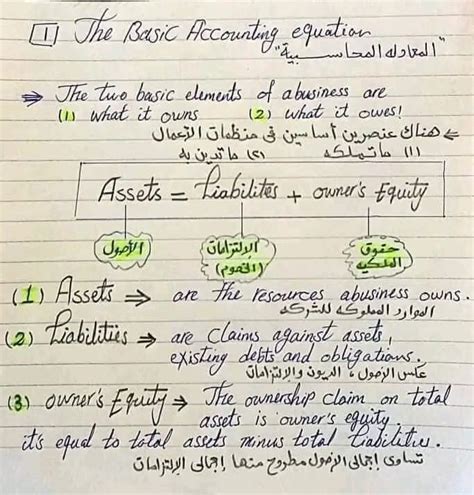 [1] The Basic Accounting equation
"المعادله المحاسبية"
⇒ The two basic elements of abusiness are
(1) what it owns (2) what it owes!
⇐ هناك عنصرين أساسين فى منظمات الآعمال
(١) ماتملكه (٢) ماتدين به
Assets = Liabilites + owner's Equity
الأصول الإلتزامات (الخصوم) حقوق الملكيه
(1) Assets ⇒ are the resources abusiness owns.
الموارد المملوكه للشركه
(2) Liabilities ⇒ are Claims against assets,
existing debts and obligations.
عكس الأصول، الديون والإلتزامات
(3) owner's Equity ⇒ The ownership claim on total
assets is owner's equity.
it's equal to total assets minus total Liabilities.
تساوى إجمالى الأصول مطروح منها إجمالى الإلتزامات